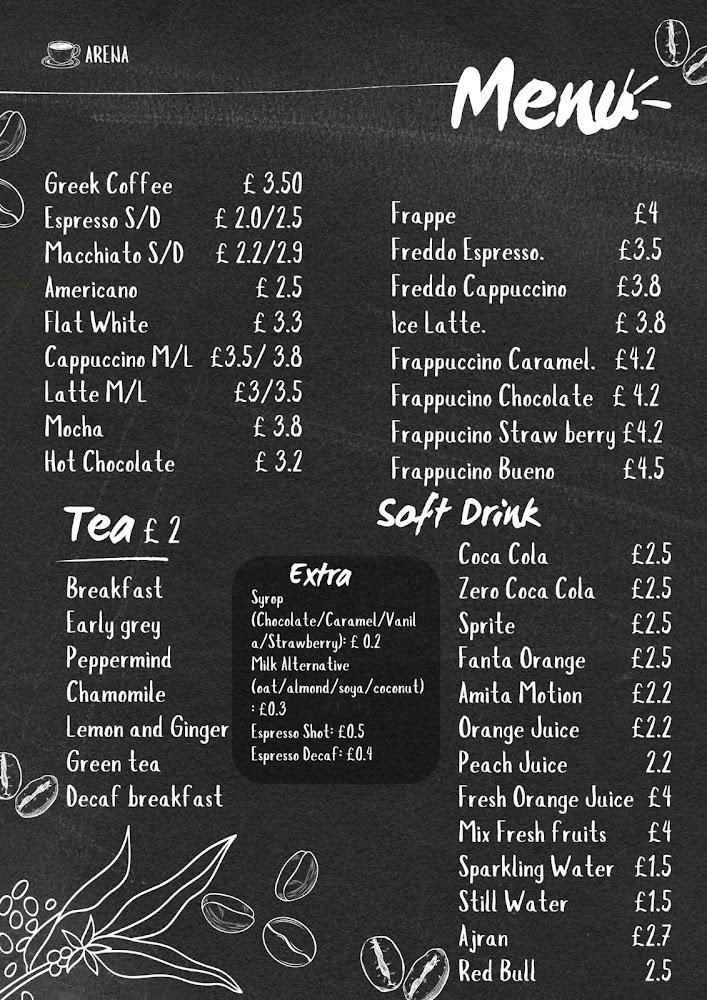 ARENA
Menu
Greek Coffee £ 3.50
Espresso S/D £ 2.0/2.5
Macchiato S/D £ 2.2/2.9
Americano £ 2.5
Flat White £ 3.3
Cappuccino M/L £3.5/ 3.8
Latte M/L £3/3.5
Mocha £ 3.8
Hot Chocolate £ 3.2
Frappe £4
Freddo Espresso. £3.5
Freddo Cappuccino £3.8
Ice Latte. £ 3.8
Frappuccino Caramel. £4.2
Frappucino Chocolate £ 4.2
Frappucino Straw berry £4.2
Frappucino Bueno £4.5
Tea £ 2
Breakfast
Early grey
Peppermind
Chamomile
Lemon and Ginger
Green tea
Decaf breakfast
Extra
Syrop
(Chocolate/Caramel/Vanil
a/Strawberry): £ 0.2
Milk Alternative
(oat/almond/soya/coconut)
: £0.3
Espresso Shot: £0.5
Espresso Decaf: £0.4
Soft Drink
Coca Cola £2.5
Zero Coca Cola £2.5
Sprite £2.5
Fanta Orange £2.5
Amita Motion £2.2
Orange Juice £2.2
Peach Juice 2.2
Fresh Orange Juice £4
Mix Fresh fruits £4
Sparkling Water £1.5
Still Water £1.5
Ajran £2.7
Red Bull 2.5